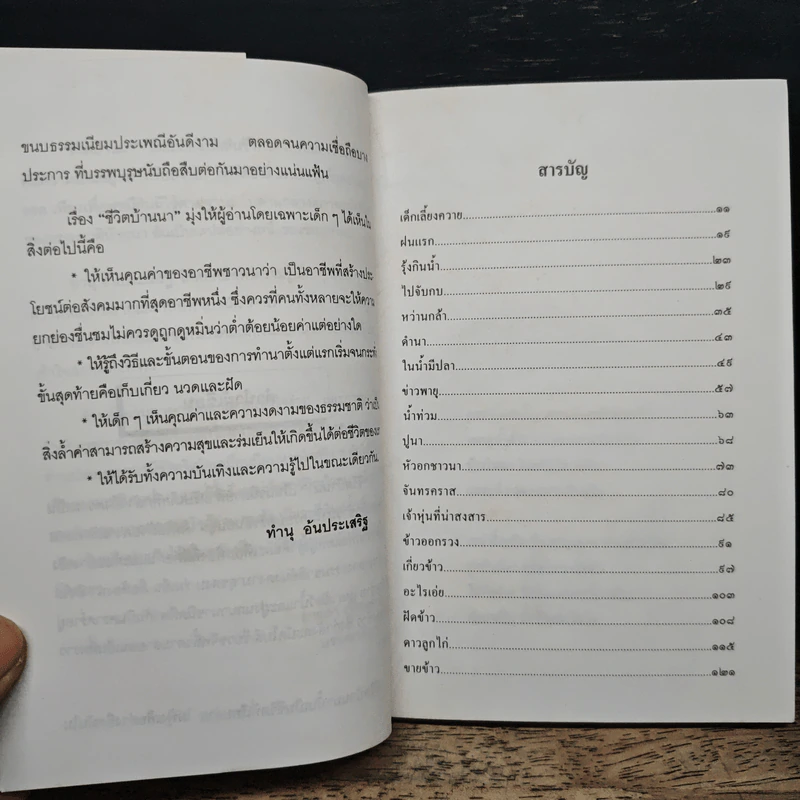 ขนบธรรมเนียมประเพณีอันดีงาม ตลอดจนความเชื่อถือบาง
ประการ ที่บรรพบุรุษนับถือสืบต่อกันมาอย่างแน่นแฟ้น
เรื่อง “ชีวิตบ้านนา” มุ่งให้ผู้อ่านโดยเฉพาะเด็ก ๆ ได้เห็นใน
สิ่งต่อไปนี้คือ
* ให้เห็นคุณค่าของอาชีพชาวนาว่า เป็นอาชีพที่สร้างประ
โยชน์ต่อสังคมมากที่สุดอาชีพหนึ่ง ซึ่งควรที่คนทั้งหลายจะให้ความ
ยกย่องชื่นชมไม่ควรดูถูกดูหมิ่นว่าต่ำต้อยน้อยค่าแต่อย่างใด
* ให้รู้ถึงวิธีและขั้นตอนของการทำนาตั้งแต่แรกเริ่มจนกระทั่ง
ขั้นสุดท้ายคือเก็บเกี่ยว นวดและฝัด
* ให้เด็ก ๆ เห็นคุณค่าและความงดงามของธรรมชาติ ว่าเป็น
สิ่งล้ำค่าสามารถสร้างความสุขและร่มเย็นให้เกิดขึ้นได้ต่อชีวิตของ
* ให้ได้รับทั้งความบันเทิงและความรู้ไปในขณะเดียวกัน
ทำนุ อันประเสริฐ
สารบัญ
เด็กเลี้ยงควาย........................๑๑
ฝนแรก........................๑๙
รุ้งกินน้ำ........................๒๓
ไปจับกบ........................๒๙
หว่านกล้า........................๓๕
ดำนา........................๔๓
ในน้ำมีปลา........................๔๙
ข่าวพายุ........................๕๗
น้ำท่วม........................๖๓
ปูนา........................๖๘
หัวอกชาวนา........................๗๓
จันทรคราส........................๘๐
เจ้าหุ่นที่น่าสงสาร........................๘๕
ข้าวออกรวง........................๙๑
เกี่ยวข้าว........................๙๗
อะไรเอ่ย........................๑๐๓
ฝัดข้าว........................๑๐๘
ดาวลูกไก่........................๑๑๕
ขายข้าว........................๑๒๑